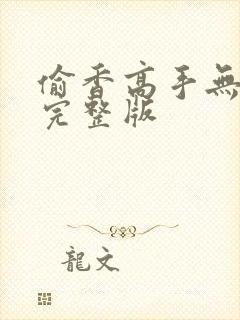 偷香高手無
完整版
龍文